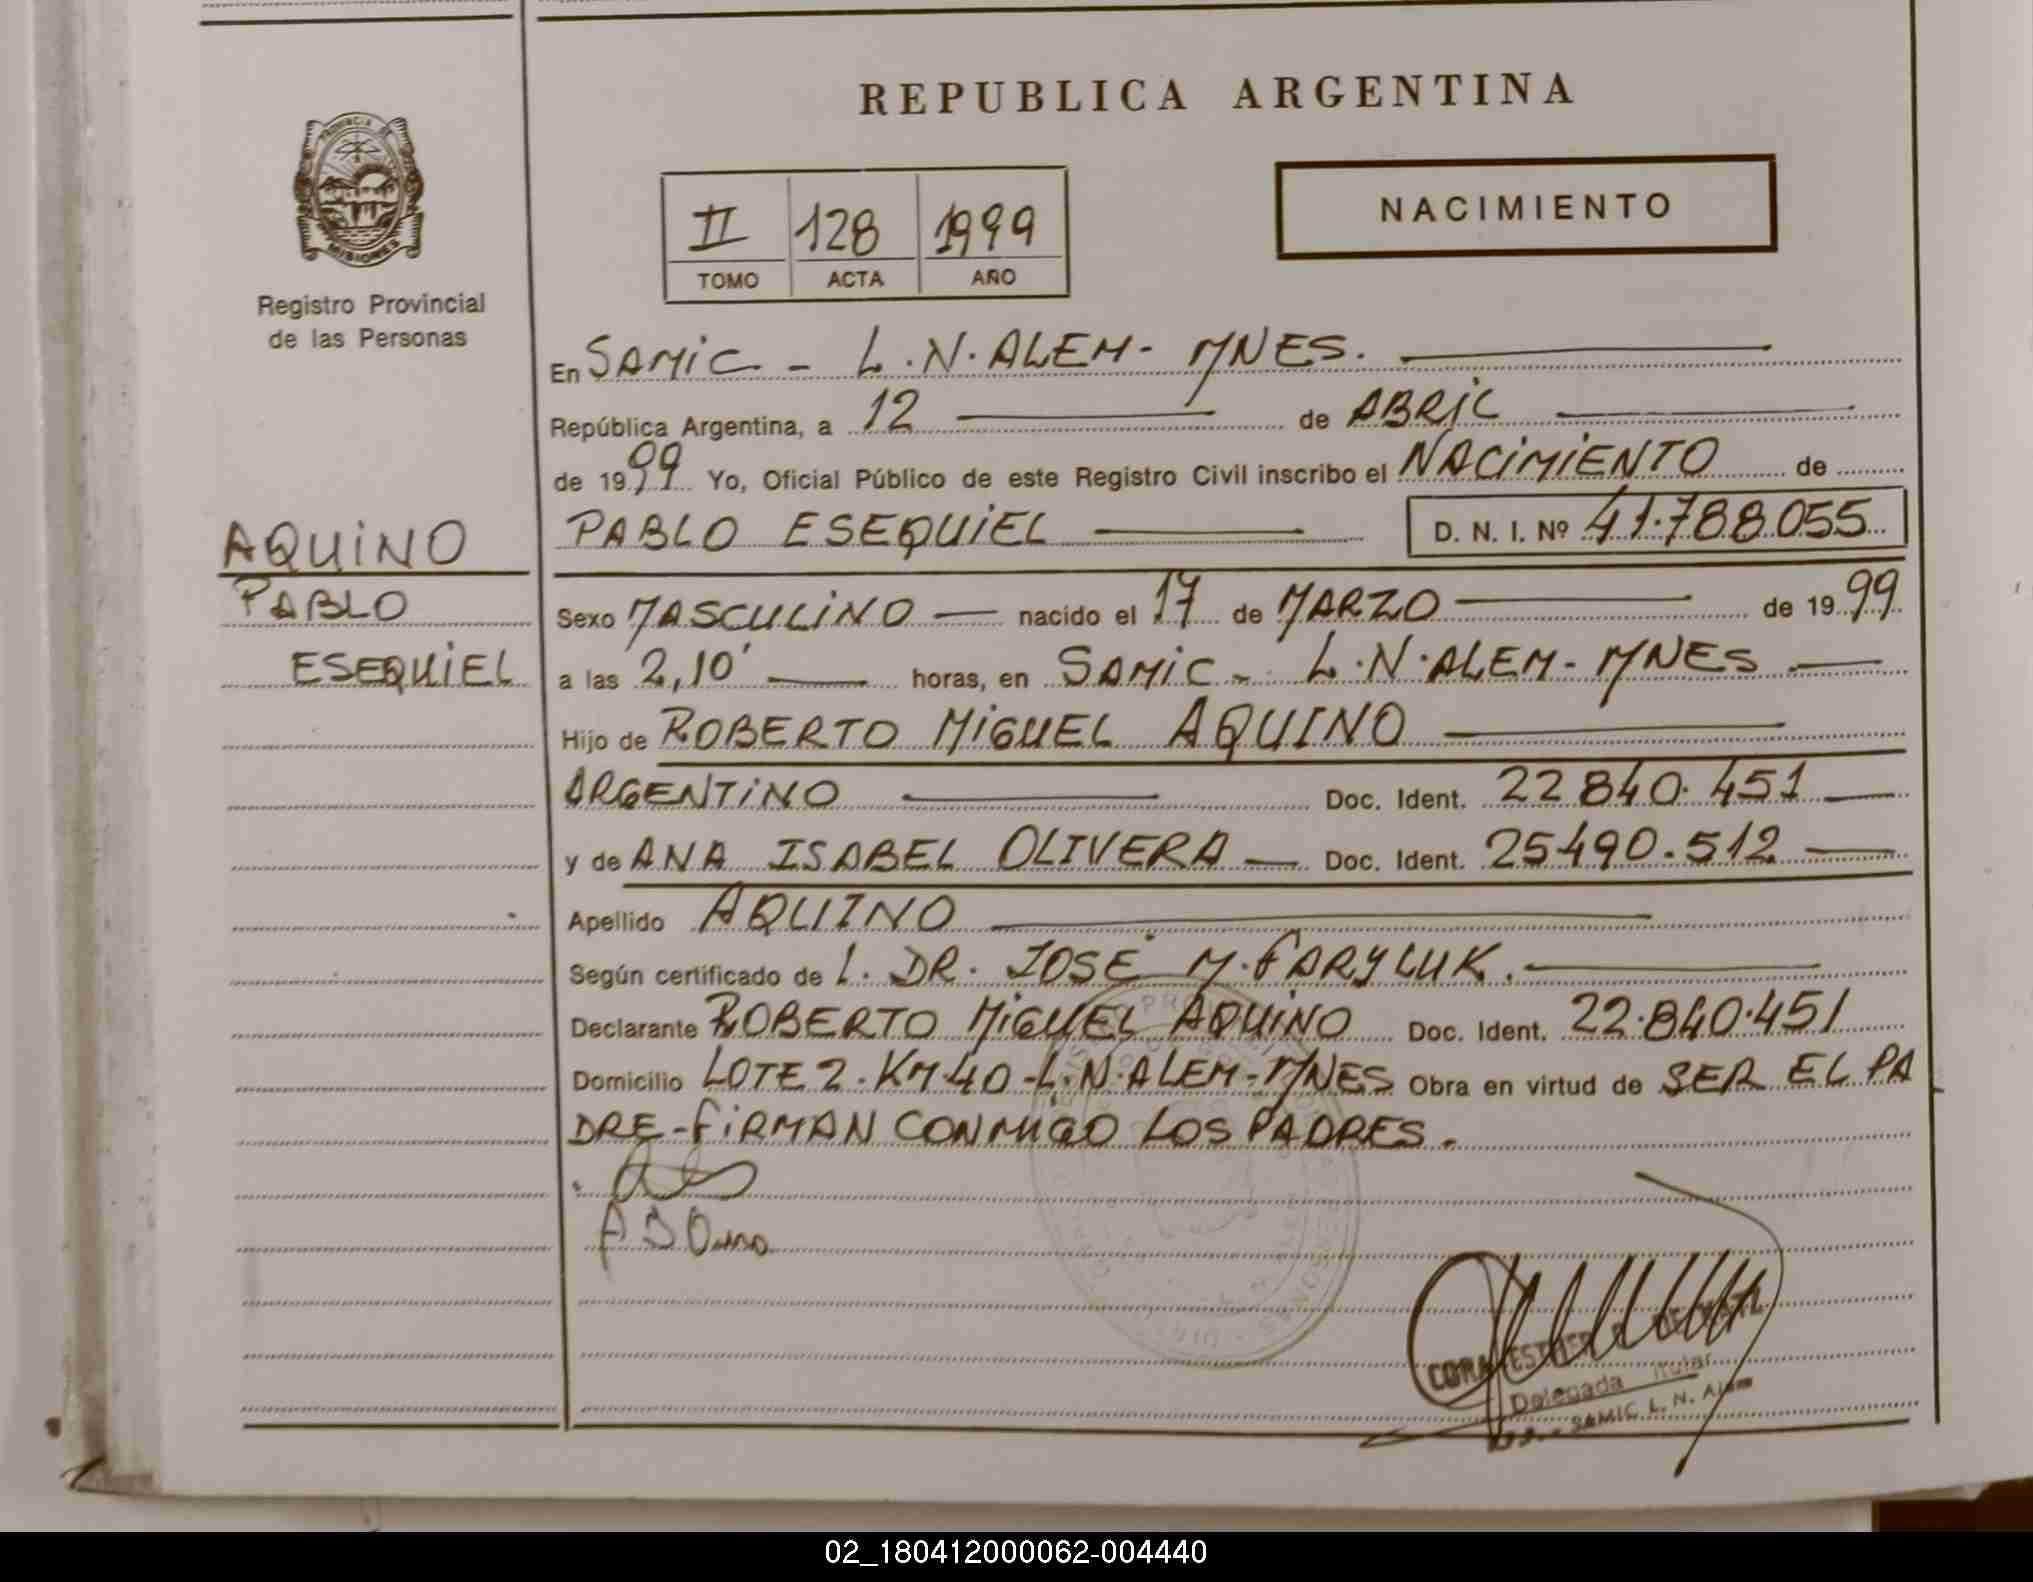 REPUBLICA ARGENTINA
PROVINCIA DE
MISIONES
Registro Provincial
de las Personas
II 128 1999
TOMO ACTA AÑO
NACIMIENTO
En SAMIC - L.N.ALEM- MNES.
República Argentina, a 12 de ABRIL
de 1999 Yo, Oficial Público de este Registro Civil inscribo el NACIMIENTO de
PABLO ESEQUIEL D. N. I. Nº 41.788.055
AQUINO
PABLO
ESEQUIEL
Sexo MASCULINO nacido el 17 de MARZO de 1999
a las 2,10' horas, en SAMIC - L.N.ALEM- MNES
Hijo de ROBERTO MIGUEL AQUINO
ARGENTINO Doc. Ident. 22840.451
y de ANA ISABEL OLIVERA Doc. Ident. 25490.512
Apellido AQUINO
Según certificado de L. DR. JOSÉ M.FARYLUK.
Declarante ROBERTO MIGUEL AQUINO Doc. Ident. 22.840.451
Domicilio LOTE 2.KM.40-L.N.ALEM-MNES Obra en virtud de SER EL PA
DRE-FIRMAN CONMIGO LOS PADRES.
ESTHER
Delegada Titular
SAMIC L. N. Alem
02_180412000062-004440